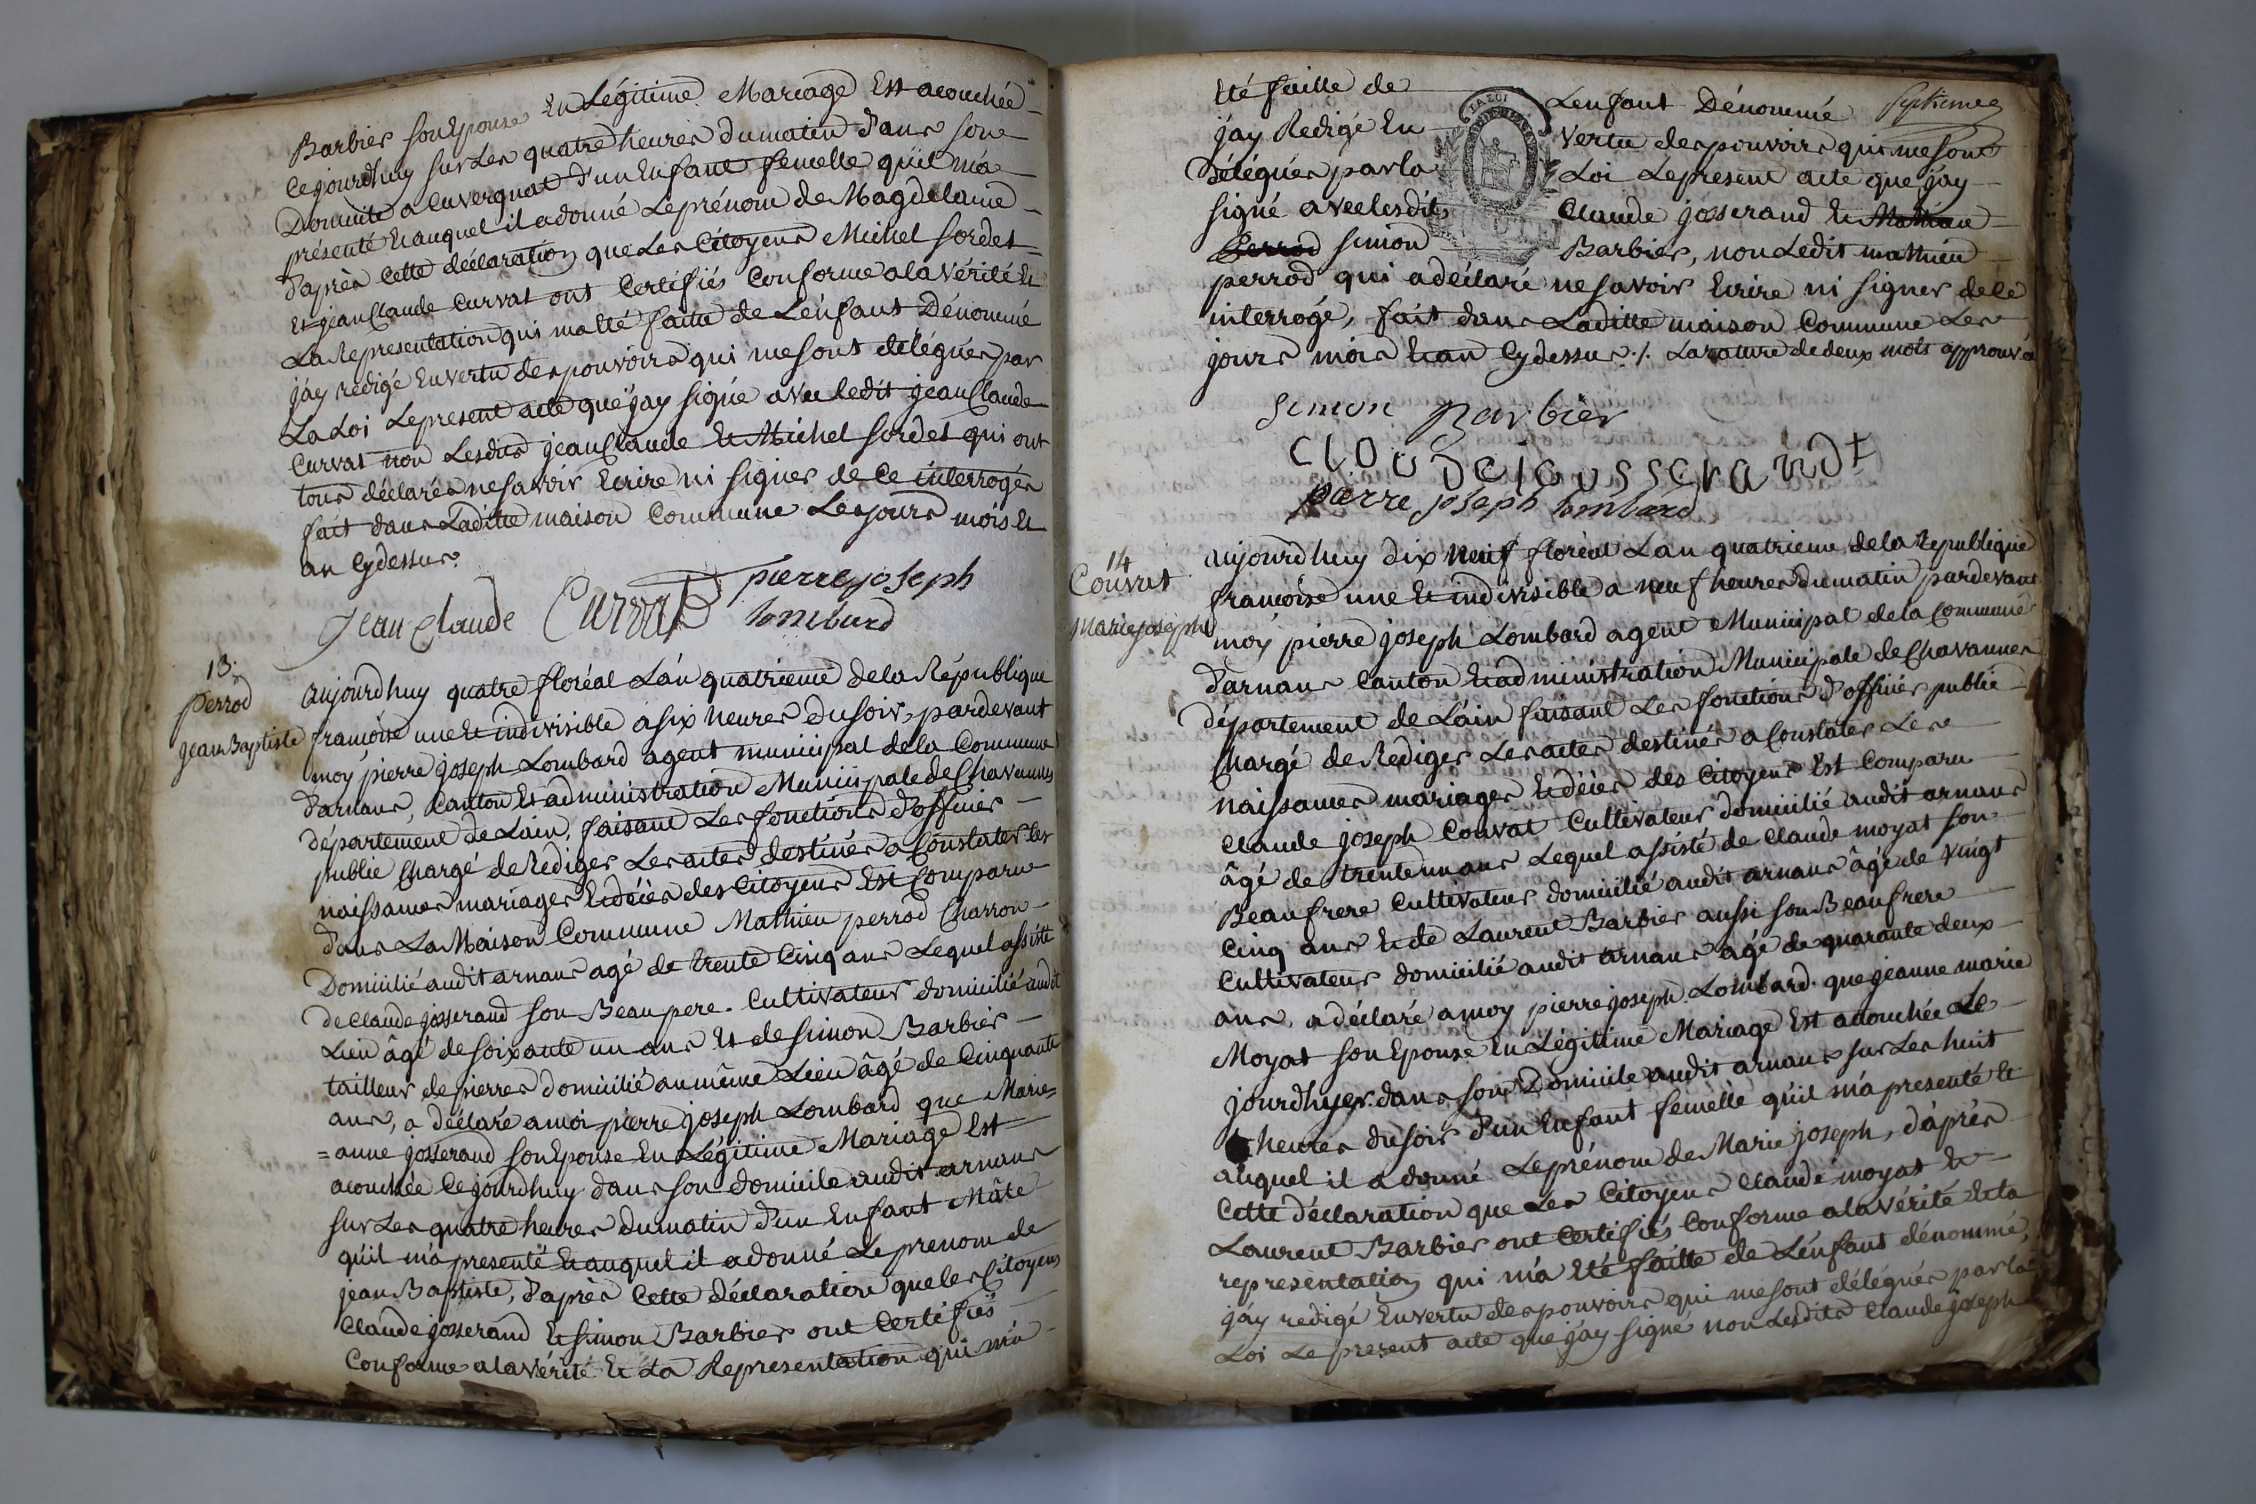 Barbier son Epouse En Légitime Mariage Est acouchée
Cejourdhuy sur Les quatre heures du matin dans son
Domicile a Cuvergnat d'un Enfant femelle qu'il m'a
présenté Et auquel il a donné Le prénom de Magdelaine
d'après Cette déclaration que Les Citoyens Michel Sordet
Et jean Claude Curvat ont Certifiés Conforme a la Vérité Et
La Representation qui m'a Eté faitte de L'enfant Dénommé
j'ay rédigé En vertu des pouvoirs qui me sont délégués par
La Loi Le present acte que j'ay signé avec ledit jean Claude
Curvat non Lesdits jean Claude Et Michel Sordet qui ont
tous déclarés ne savoir Ecrire ni signer de Ce interrogés
fait dans Laditte maison Commune Les jours mois Et
an Cydessus.
Jean Claude Curvat pierre joseph
lombard
13.
perrod
jean Baptiste
aujourdhuy quatre floréal L'an quatrieme de la République
françoise une Et indivisible a six heures du soir, pardevant
moy pierre joseph Lombard agent municipal de la Commune
d'arnans, Canton Et administration Municipale de Chavannes
département de L'ain, faisant Les fonctions d'officier
public Chargé de Rédiger Les actes destinés a Constater les
naissances mariages Et décès des Citoyens Est Comparu
dans La Maison Commune Mathieu perrod Charron
Domicilié audit arnans agé de trente Cinq ans Lequel assisté
de Claude josserand son Beaupere. Cultivateur domicilié audit
Lieu âgé de soixante un ans Et de Simon Barbier
tailleur de pierres domicilié au même Lieu âgé de Cinquante
ans, a déclaré a moi pierre joseph Lombard que Marie=
=anne josserand son Epouse En Légitime Mariage Est
acouchée Cejourdhuy dans son domicile audit arnans
sur Les quatre heures du matin d'un Enfant Mâle
qu'il m'a presenté Et auquel il a donné Le prenom de
jean Baptiste, d'après Cette déclaration que les Citoyens
Claude josserand Et Simon Barbier ont Certifiés
Conforme a la Vérité Et La Representation qui m'a
Eté faitte de L'enfant Dénommé
j'ay Redigé En vertu des pouvoirs qui me sont
Délégués par la Loi Le present acte que j'ay
signé avec lesdits Claude josserand Et Mathieu
Perrod Simon Barbier, non Ledit mathieu
perrod qui a déclaré ne savoir Ecrire ni signer de Ce
interrogé, fait dans Laditte maison Commune Les
jours mois Et an Cydessus ./. La rature de deux mots approuvée
Simon Barbier
CLOUDe IOUSSERANDT
pierre joseph lombard
14
Couvat
Marie joseph
aujourdhuy dix neuf floréal L'an quatrieme de la Republique
françoise une Et indivisible a neuf heures du matin pardevant
moy pierre joseph Lombard agent Municipal de la Commune
d'arnans Canton Et administration Municipale de Chavannes
département de L'ain faisant Les fonctions d'officier public
Chargé de Rediger Les actes destinés a Constater Les
naissances mariages Et décès des Citoyens Est Comparu
Claude joseph Couvat Cultivateur domicilié audit arnans
âgé de trente un ans Lequel assisté de Claude moyat son
Beaufrere Cultivateur domicilié audit arnans âgé de vingt
Cinq ans Et de Laurent Barbier aussi son Beaufrere
Cultivateur domicilié audit arnans agé de quarante deux
ans, a déclaré a moy pierre joseph Lombard que jeanne marie
Moyat son Epouse En Légitime Mariage Est acouchée Le
jourdhyer dans son Domicile audit arnans sur Les huit
heures du soir d'un Enfant femelle qu'il m'a presenté Et
auquel il a donné Le prénom de Marie joseph, d'après
Cette déclaration que Les Citoyens Claude moyat Et
Laurent Barbier ont Certifiés Conforme a la Vérité Et la
representation qui m'a Eté faitte de L'enfant dénommé,
j'ay redigé En vertu des pouvoirs qui me sont délégués par la
Loi Le present acte que j'ay signé non Lesdits Claude joseph